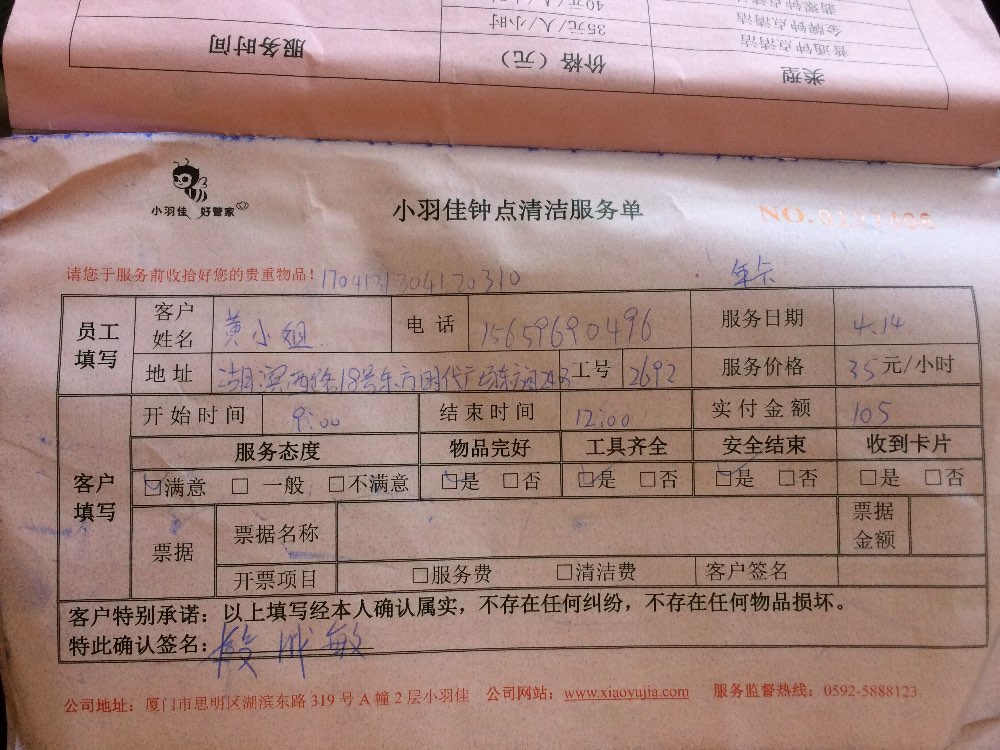 普通钟点清洁
金牌钟点清洁
翡翠钟点清洁
35元/人/小时
40元/人/小时
类型 价格（元） 服务时间
小羽佳 好管家
小羽佳钟点清洁服务单
NO.
请您于服务前收拾好您的贵重物品！
年卡
员工填写 客户姓名 黄小姐 电话 15659690496 服务日期 4.14
地址 湖滨西路18号东方时代广场 工号 2692 服务价格 35元/小时
客户填写 开始时间 9:00 结束时间 12:00 实付金额 105
服务态度 物品完好 工具齐全 安全结束 收到卡片
☑满意 □一般 □不满意 ☑是 □否 ☑是 □否 ☑是 □否 □是 □否
票据 票据名称 票据金额
开票项目 □服务费 □清洁费 客户签名
客户特别承诺：以上填写经本人确认属实，不存在任何纠纷，不存在任何物品损坏。
特此确认签名：
公司地址：厦门市思明区湖滨东路319号A幢2层小羽佳 公司网站：www.xiaoyujia.com 服务监督热线：0592-5888123